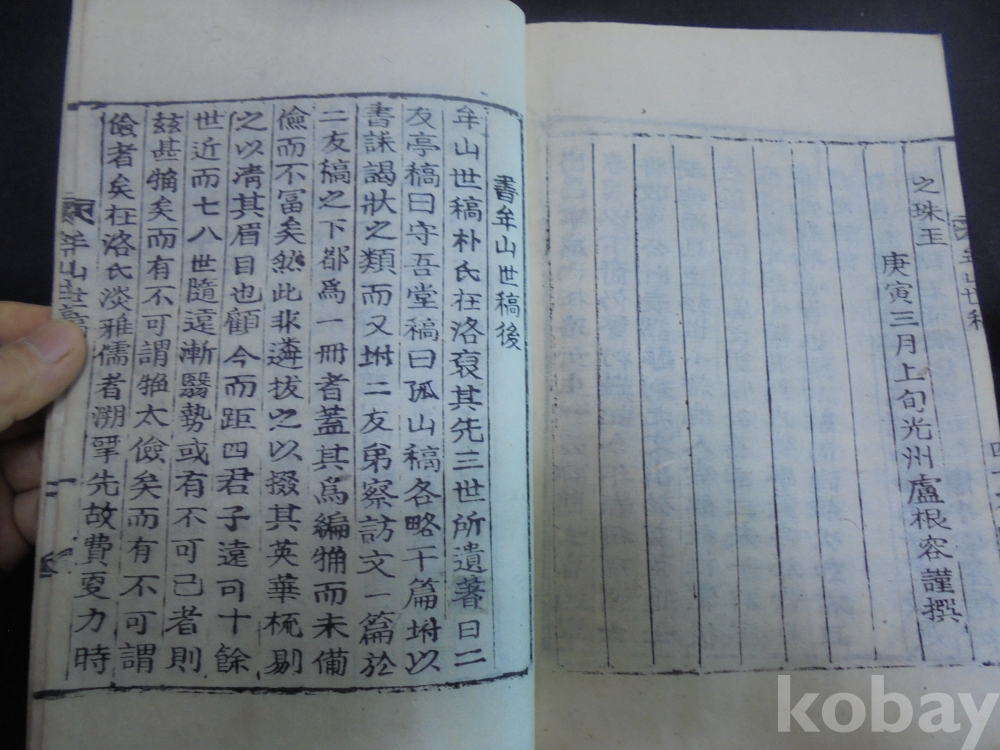 之珠玉
庚寅三月上旬光州盧根容謹撰
牟山世稿
書牟山世稿後
牟山世稿朴氏在洛裒其先三世所遺著曰二
友亭稿曰守吾堂稿曰孤山稿各略干篇坿以
書誄謁狀之類而又坿二友弟察訪文一篇於
二友稿之下都爲一冊者蓋其爲編猏而未備
儉而不富矣然此非遴拔之以掇其英華梳剔
之以淸其眉目也顧今而距四君子遠可十餘
世近而七八世隨遠漸翳勢或有不可已者則
玆甚矣而有不可謂太儉矣而有不可謂
儉者矣在洛氏淡雅儒者溯先故費叓力時
牟山世稿
kobay